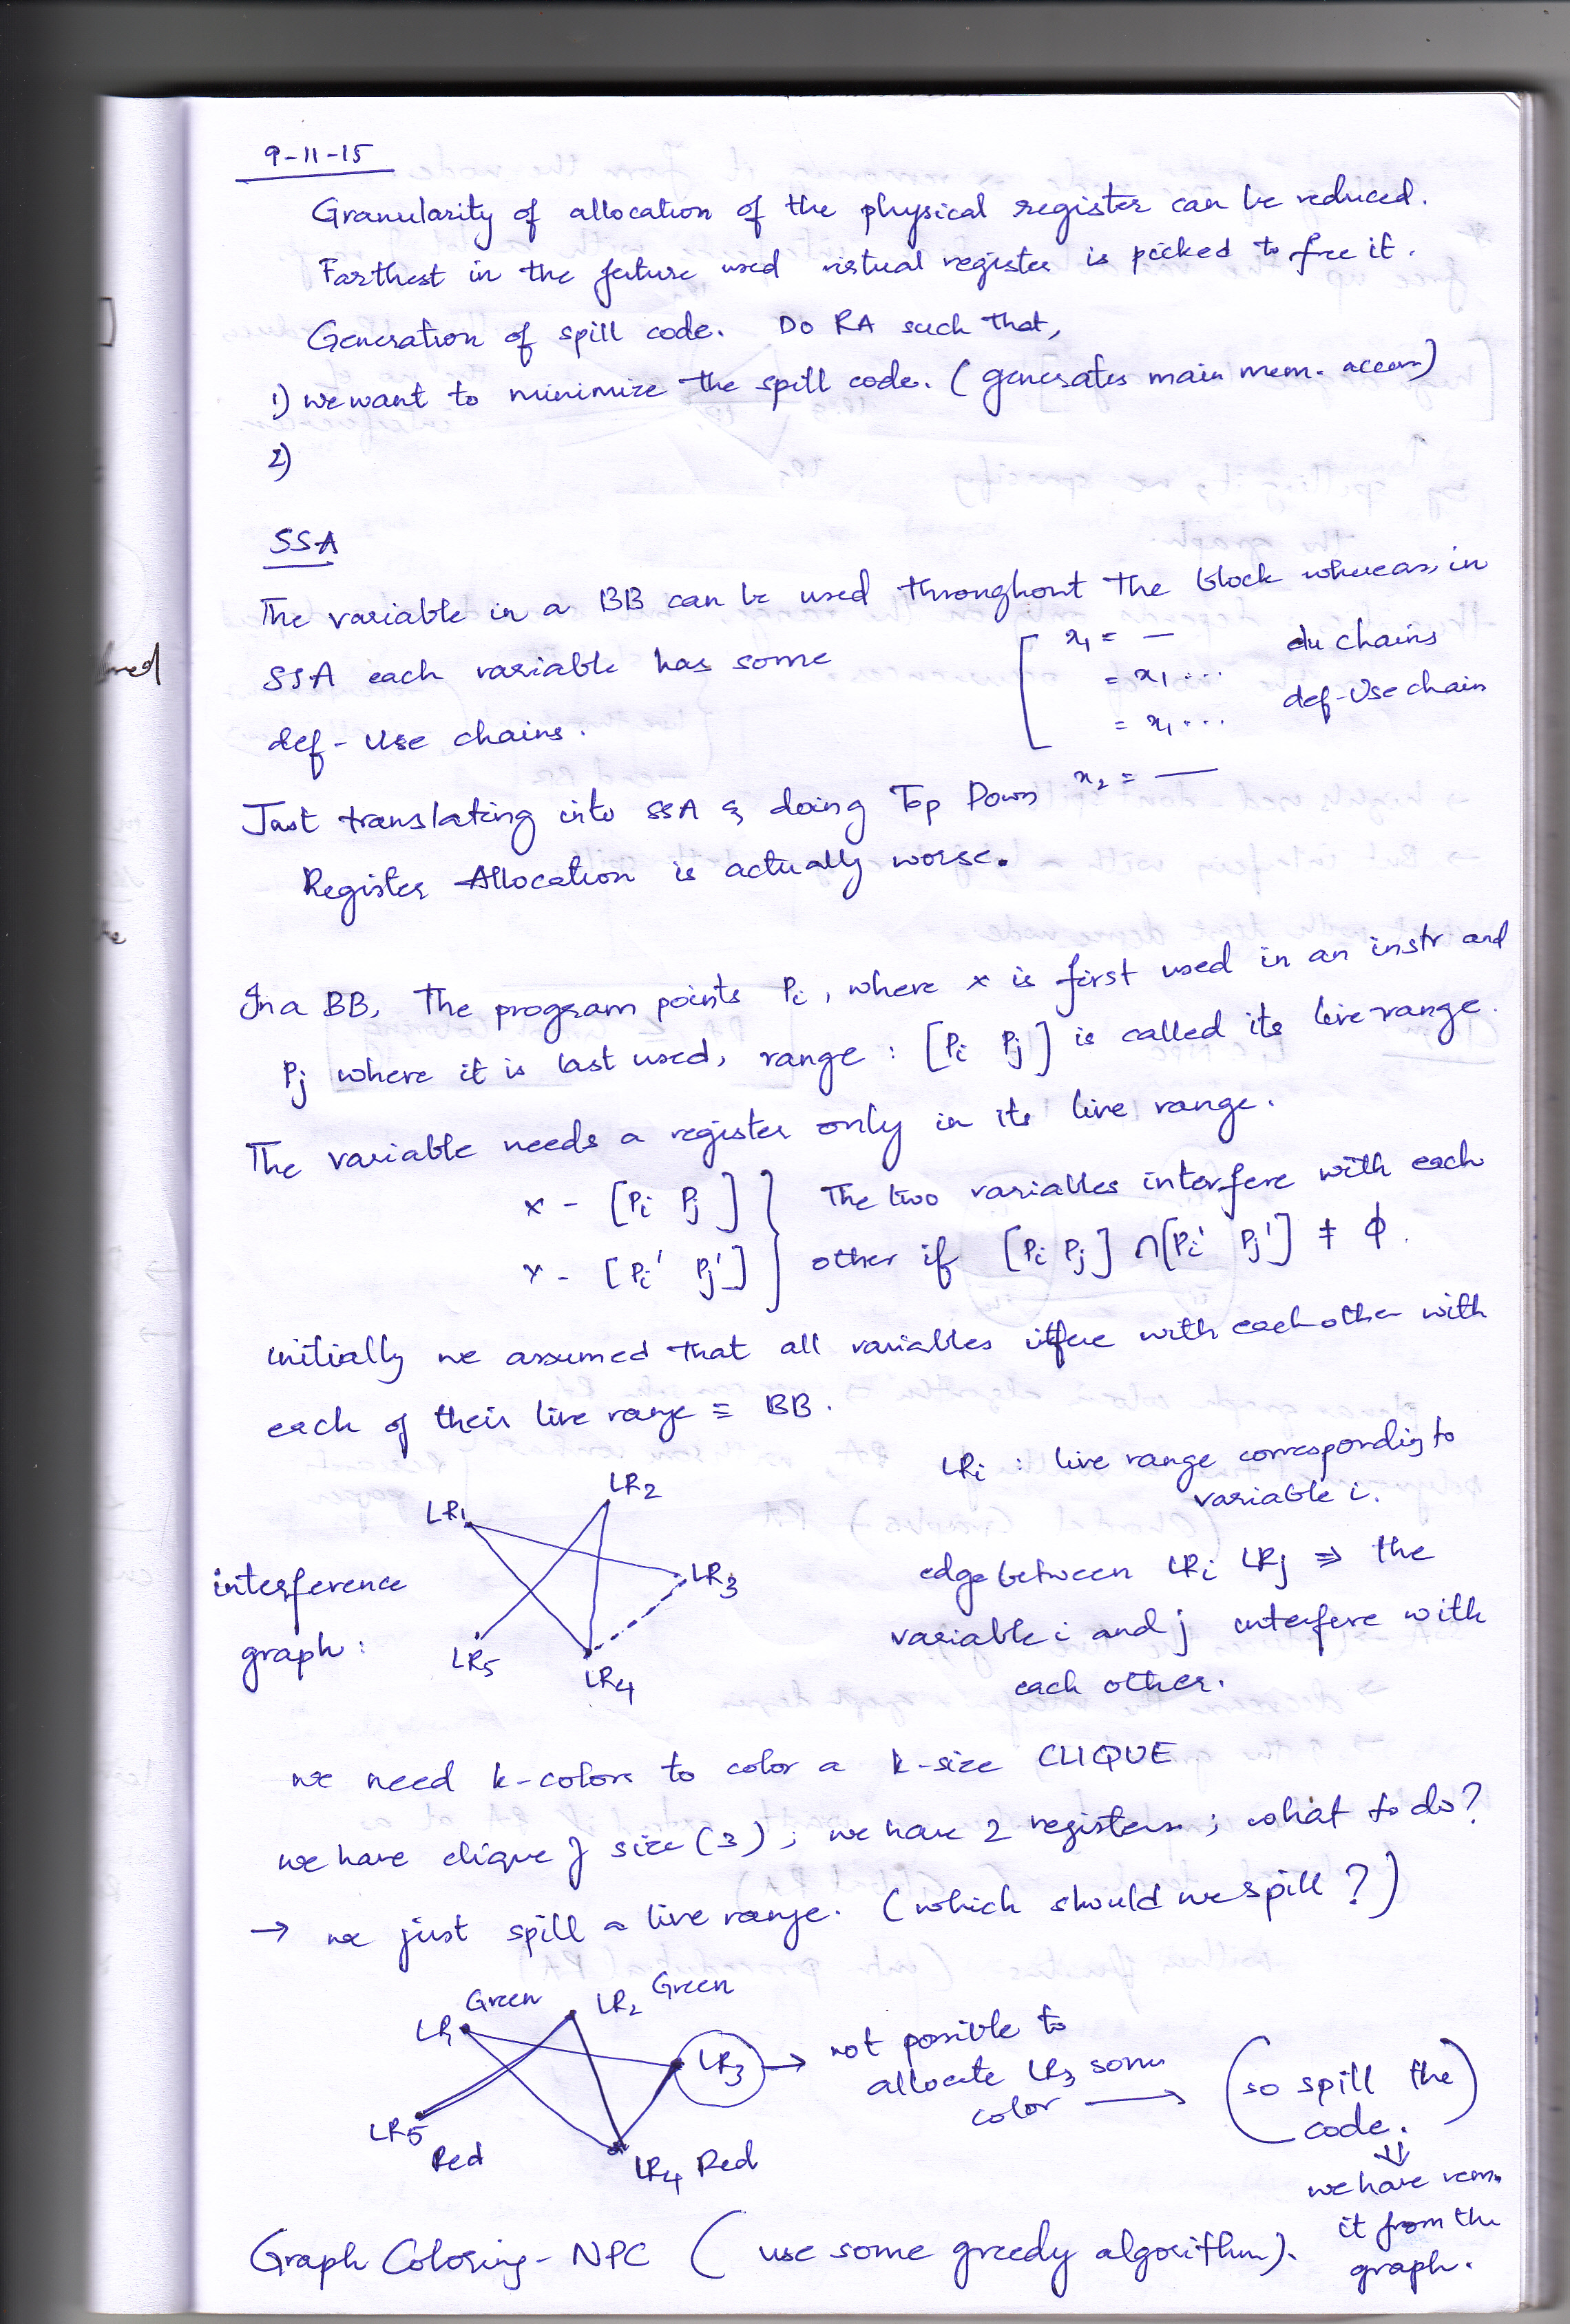 9-11-15
Granularity of allocation of the physical register can be reduced.
Farthest in the future used virtual register is picked to free it.
Generation of spill code. Do RA such that,
1) we want to minimize the spill code. (generates main mem. access)
2)
SSA
The variable in a BB can be used throughout the block whereas, in
SSA each variable has some
def-Use chains.
x₁ = —
= x₁ ...
= x₁ ...
x₂ = —
du chains
def-Use chain
Just translating into SSA & doing Top Down
Register Allocation is actually worse.
In a BB, The program points Pi, where x is first used in an instr and
Pj where it is last used, range : [Pi Pj] is called its live range.
The variable needs a register only in its live range.
x - [Pi Pj]
Y - [Pi' Pj']
The two variables interfere with each
other if [Pi Pj] ∩ [Pi' Pj'] ≠ ϕ.
initially we assumed that all variables itfere with each other with
each of their live range ≡ BB.
LRi : live range corresponding to
variable i.
interference
graph :
LR1
LR2
LR3
LR5
LR4
edge between LRi LRj ⇒ the
variable i and j interfere with
each other.
we need k-colors to color a k-size CLIQUE
we have clique of size (3) ; we have 2 registers ; what to do?
→ we just spill a live range. (which should we spill ?)
LR1 Green
LR2 Green
LR3 → not possible to
allocate LR3 some
color → (so spill the
code.)
⇓
we have rem.
it from the
graph.
LR5
Red
LR4 Red
Graph Coloring - NPC (use some greedy algorithm).